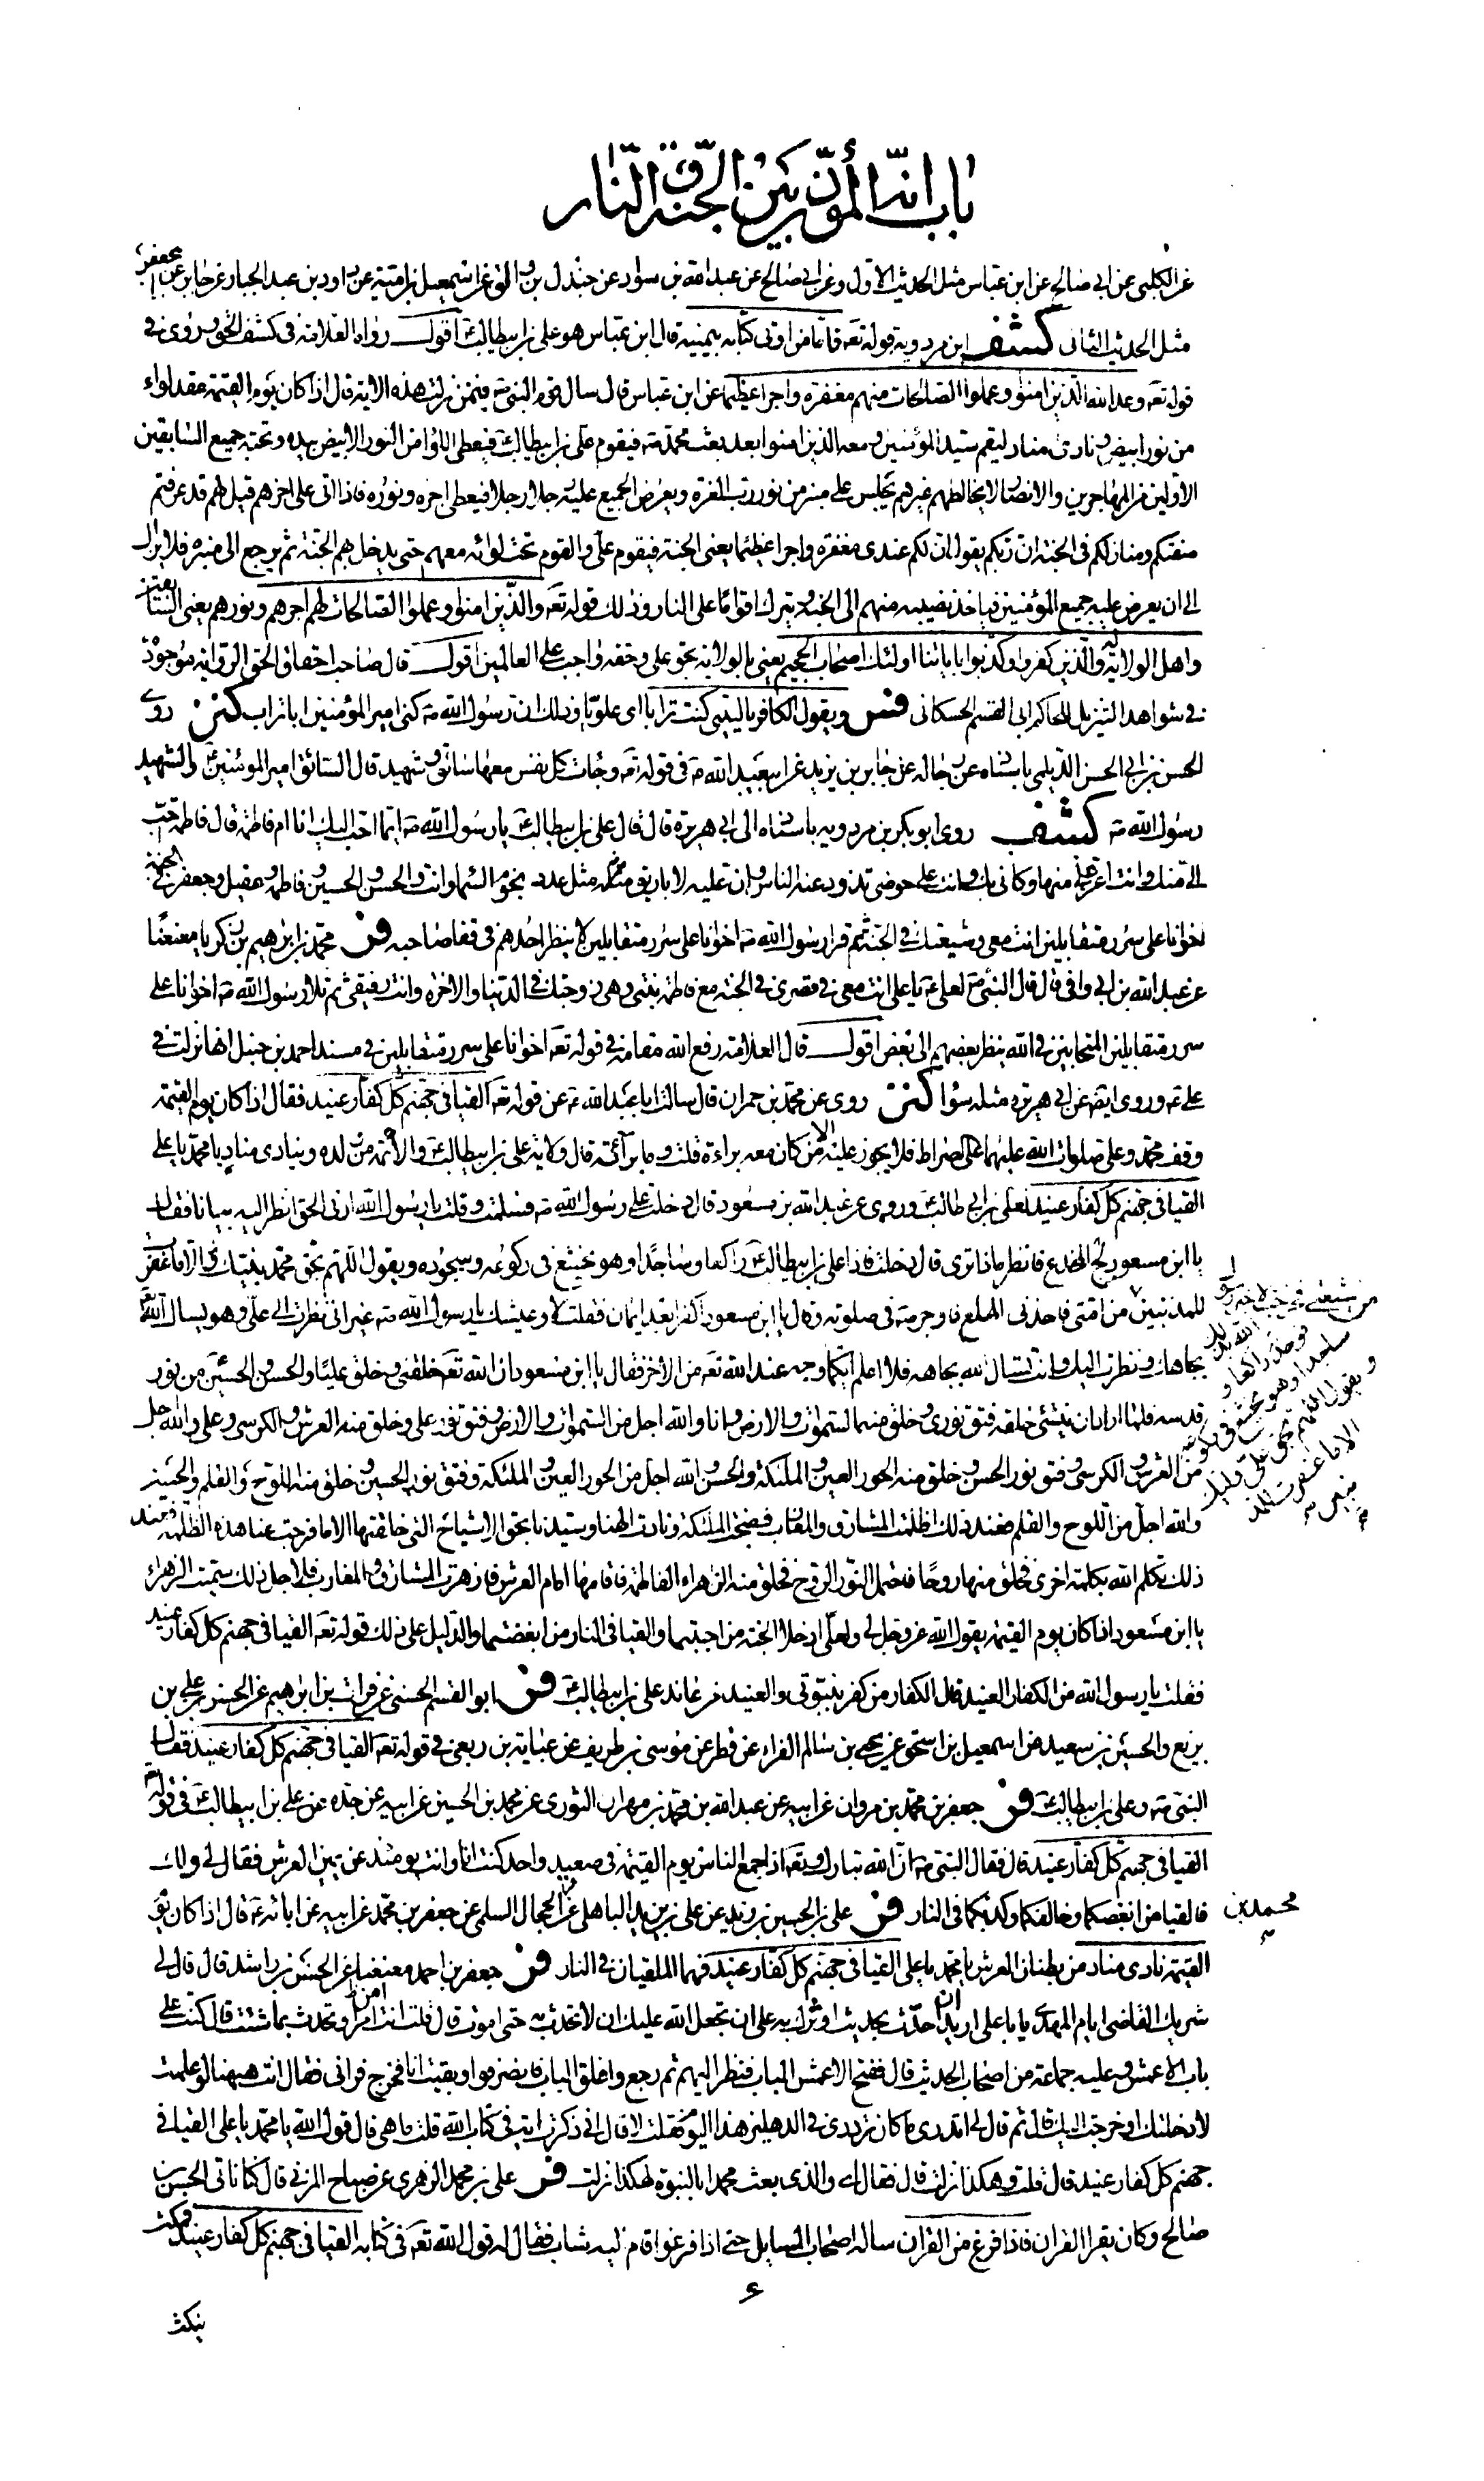 باب انه المؤذن بين الجنة و النار
عن الكلبي عن ابي صالح عن ابن عباس مثل الحديث الاول و عن ابي صالح عن عبد الله بن سواد عن جندل بن والق عن اسمعيل بن امية عن داود بن عبد الجبار عن جابر عن ابي جعفر
مثل الحديث الثاني كشف ابن مردويه قوله تعه فاما من اوتي كتابه بيمينه قال ابن عباس هو علي بن ابيطالب ع اقول رواه العلامة في كشف الحق و روى في
قوله تعه وعد الله الذين امنوا و عملوا الصالحات منهم مغفرة و اجرا عظيما عن ابن عباس قال سال قوم النبي ص فيمن نزلت هذه الاية قال اذا كان يوم القيمة عقد لواء
من نور ابيض و نادى مناد ليقم سيد المؤمنين و معه الذين امنوا بعد بعث محمد ص فيقوم علي بن ابيطالب ع فيعطى اللواء من النور الابيض بيده و تحته جميع السابقين
الاولين من المهاجرين و الانصار لا يخالطهم غيرهم يجلس على منبر من نور رب العزة و يعرض الجميع عليه رجلا رجلا فيعطى اجره و نوره فاذا اتى على اخرهم قيل لهم قد عرفتم
منازلكم في الجنة ان ربكم يقول ان لكم عندي مغفرة و اجرا عظيما يعني الجنة فيقوم علي و القوم تحت لوائه معهم حتى يدخل بهم الجنة ثم يرجع الى منبره فلا يزال
الى ان يعرض عليه جميع المؤمنين فياخذ نصيبه منهم الى الجنة و يترك اقواما على النار و ذلك قوله تعه و الذين امنوا و عملوا الصالحات لهم اجرهم و نورهم يعني السابقين
و اهل الولاية له و الذين كفروا و كذبوا باياتنا اولئك اصحاب الجحيم يعني بالولاية بحق علي و حقه واجب على العالمين اقول قال صاحب احقاق الحق الرواية موجودة
في شواهد التنزيل للحاكم ابي القسم الحسكاني و يقول الكافر يا ليتني كنت ترابا اي علويا و ذلك ان رسول الله ص كنى امير المؤمنين ابا تراب كنز روى
الحسن بن ابي الحسن الديلمي باسناه عن رجاله عن جابر بن يزيد عن ابيعبد الله ع في قوله تع و جاءت كل نفس معها سائق و شهيد قال السائق امير المؤمنين ع و الشهيد
رسول الله ص كشف روى ابو بكر بن مردويه باسناه الى ابي هريرة قال قال علي بن ابيطالب ع يا رسول الله ص ايما احب اليك انا ام فاطمة قال فاطمة احب
الي منك و انت اعز علي منها و كاني بك و انت على حوضي تذود عنه الناس و ان عليه لاباريق مثل عدد نجوم السماء و انت و الحسن و الحسين و فاطمة و عقيل و جعفر في الجنة
اخوانا على سرر متقابلين انت معي و شيعتك في الجنة ثم قرا رسول الله ص اخوانا على سرر متقابلين لا ينظر احدهم في قفا صاحبه فر محمد بن ابرهيم بن زكريا معنعنا
عن عبد الله بن ابي اوفى قال قال النبي ص لعلي ع يا علي انت معي في قصري في الجنة مع فاطمة بنتي و هي زوجتك في الدنيا و الاخرة و انت رفيقي ثم تلا رسول الله ص اخوانا على
سرر متقابلين المتحابين في الله ينظر بعضهم الى بعض اقول قال العلامة رفع الله مقامه في قوله تعه اخوانا على سرر متقابلين في مسند احمد بن حنبل انها نزلت في
علي ع و روى ايضه عن ابي هريرة مثله سواء كنز روى عن محمد بن حمران قال سالت ابا عبد الله ع عن قوله تعه القيا في جهنم كل كفار عنيد فقال اذا كان يوم القيمة
وقف محمد و علي صلوات الله عليهما على الصراط فلا يجوز عليه الا من كان معه براءة قلت و ما براءته قال ولاية علي بن ابيطالب ع و الائمة من ولده و ينادي مناد يا محمد يا علي
القيا في جهنم كل كفار عنيد لعلي بن ابي طالب ع و روى عن عبد الله بن مسعود قال دخلت على رسول الله ص فسلمت و قلت يا رسول الله ارني الحق انظر اليه بيانا فقال
يا ابن مسعود لج المخدع فانظر ماذا ترى قال فدخلت فاذا علي بن ابيطالب ع راكعا و ساجدا و هو يخشع في ركوعه و سجوده و يقول اللهم بحق محمد نبيك الا ما غفرت
للمذنبين من امتي فاخذني الهلع فاوجز ص في صلوته و قال يا ابن مسعود اكفر بعد ايمان فقلت لا و عيشك يا رسول الله ص غير اني نظرت الى علي و هو يسال الله تعه
بجاهك و نظرت اليك و انت تسال الله بجاهه فلا اعلم ايكما اوجه عند الله تعه من الاخر فقال يا ابن مسعود ان الله تعه خلقني و خلق عليا و الحسن و الحسين من نور
قدسه فلما اراد ان ينشئ خلقه فتق نوري و خلق منه السموات و الارض و انا و الله اجل من السموات و الارض و فتق نور علي و خلق منه العرش و الكرسي و علي و الله اجل
من العرش و الكرسي و فتق نور الحسن و خلق منه الحور العين و الملئكة و الحسن و الله اجل من الحور العين و الملئكة و فتق نور الحسين و خلق منه اللوح و القلم و الحسين
و الله اجل من اللوح و القلم فعند ذلك اظلمت المشارق و المغارب فضجت الملئكة و نادت الهنا و سيدنا بحق الاشباح التي خلقتها الا ما فرجت عنا هذه الظلمة فعند
ذلك تكلم الله بكلمة اخرى فخلق منها روحا فاحتمل النور الروح فخلق منه الزهراء فاطمة فاقامها امام العرش فازهرت المشارق و المغارب فلاجل ذلك سميت الزهراء
يا ابن مسعود اذا كان يوم القيمة يقول الله عز و جل لي و لعلي ادخلا الجنة من احببتما و القيا في النار من ابغضتما و الدليل على ذلك قوله تعه القيا في جهنم كل كفار عنيد
فقلت يا رسول الله من الكفار العنيد قال الكفار من كفر بنبوتي و العنيد من عاند علي بن ابيطالب ع فر ابو القسم الحسني عن فرات بن ابرهيم عن الحسن بن علي بن
بزيع و الحسين بن سعيد عن اسمعيل بن اسحق عن يحيى بن سالم الفراء عن فطر عن موسى بن طريف عن عباية بن ربعي في قوله تعه القيا في جهنم كل كفار عنيد فقال
النبي ص و علي بن ابيطالب ع فر جعفر بن محمد بن مروان عن ابيه عن عبد الله بن محمد بن مهران الثوري عن محمد بن الحسين عن ابيه عن جده عن علي بن ابيطالب ع في قوله تعه
القيا في جهنم كل كفار عنيد قال فقال النبي ص ان الله تبارك و تعه اذا جمع الناس يوم القيمة في صعيد واحد كنت انا و انت يومئذ عن يمين العرش فقال لي و لك
قوما فالقيا من ابغضكما و خالفكما و كذبكما في النار فر علي بن الحسين بن زيد عن علي بن يزيد الباهلي عن محمد بن الحجال السلمي عن جعفر بن محمد عن ابيه عن ابائه ع قال اذا كان يوم
القيمة نادى مناد من بطنان العرش يا محمد يا علي القيا في جهنم كل كفار عنيد فهما الملقيان في النار فر جعفر بن احمد معنعنا عن الحسن بن راشد قال قال لي
شريك القاضي ايام المهدي يا ابا علي اريد ان احدث بحديث اوثرك به على ان تجعل الله عليك ان لا تحدث به حتى اموت قال قلت انت امن فحدث بما شئت قال كنت على
باب الاعمش و عليه جماعة من اصحاب الحديث قال ففتح الاعمش الباب فنظر اليهم ثم رجع و اغلق الباب فانصرفوا و بقيت انا فخرج فراني فقال انت هيهنا لو علمت
لادخلتك او خرجت اليك قال ثم قال لي اتدري ما كان ترددي في الدهليز هذا اليوم فقلت لا قال اني ذكرت اية في كتاب الله قلت ما هي قال قول الله يا محمد يا علي القيا في
جهنم كل كفار عنيد قال قلت و هكذا نزلت قال فقال اي و الذي بعث محمدا بالنبوة لهكذا نزلت فر علي بن محمد الزهري عن صباح المزني قال كنا ناتي الحسن بن
صالح و كان يقرا القران فاذا فرغ من القران ساله اصحاب المسايل حتى اذا فرغوا قام اليه شاب فقال له قول الله تعه في كتابه القيا في جهنم كل كفار عنيد فمكث
ينكت
محمد بن